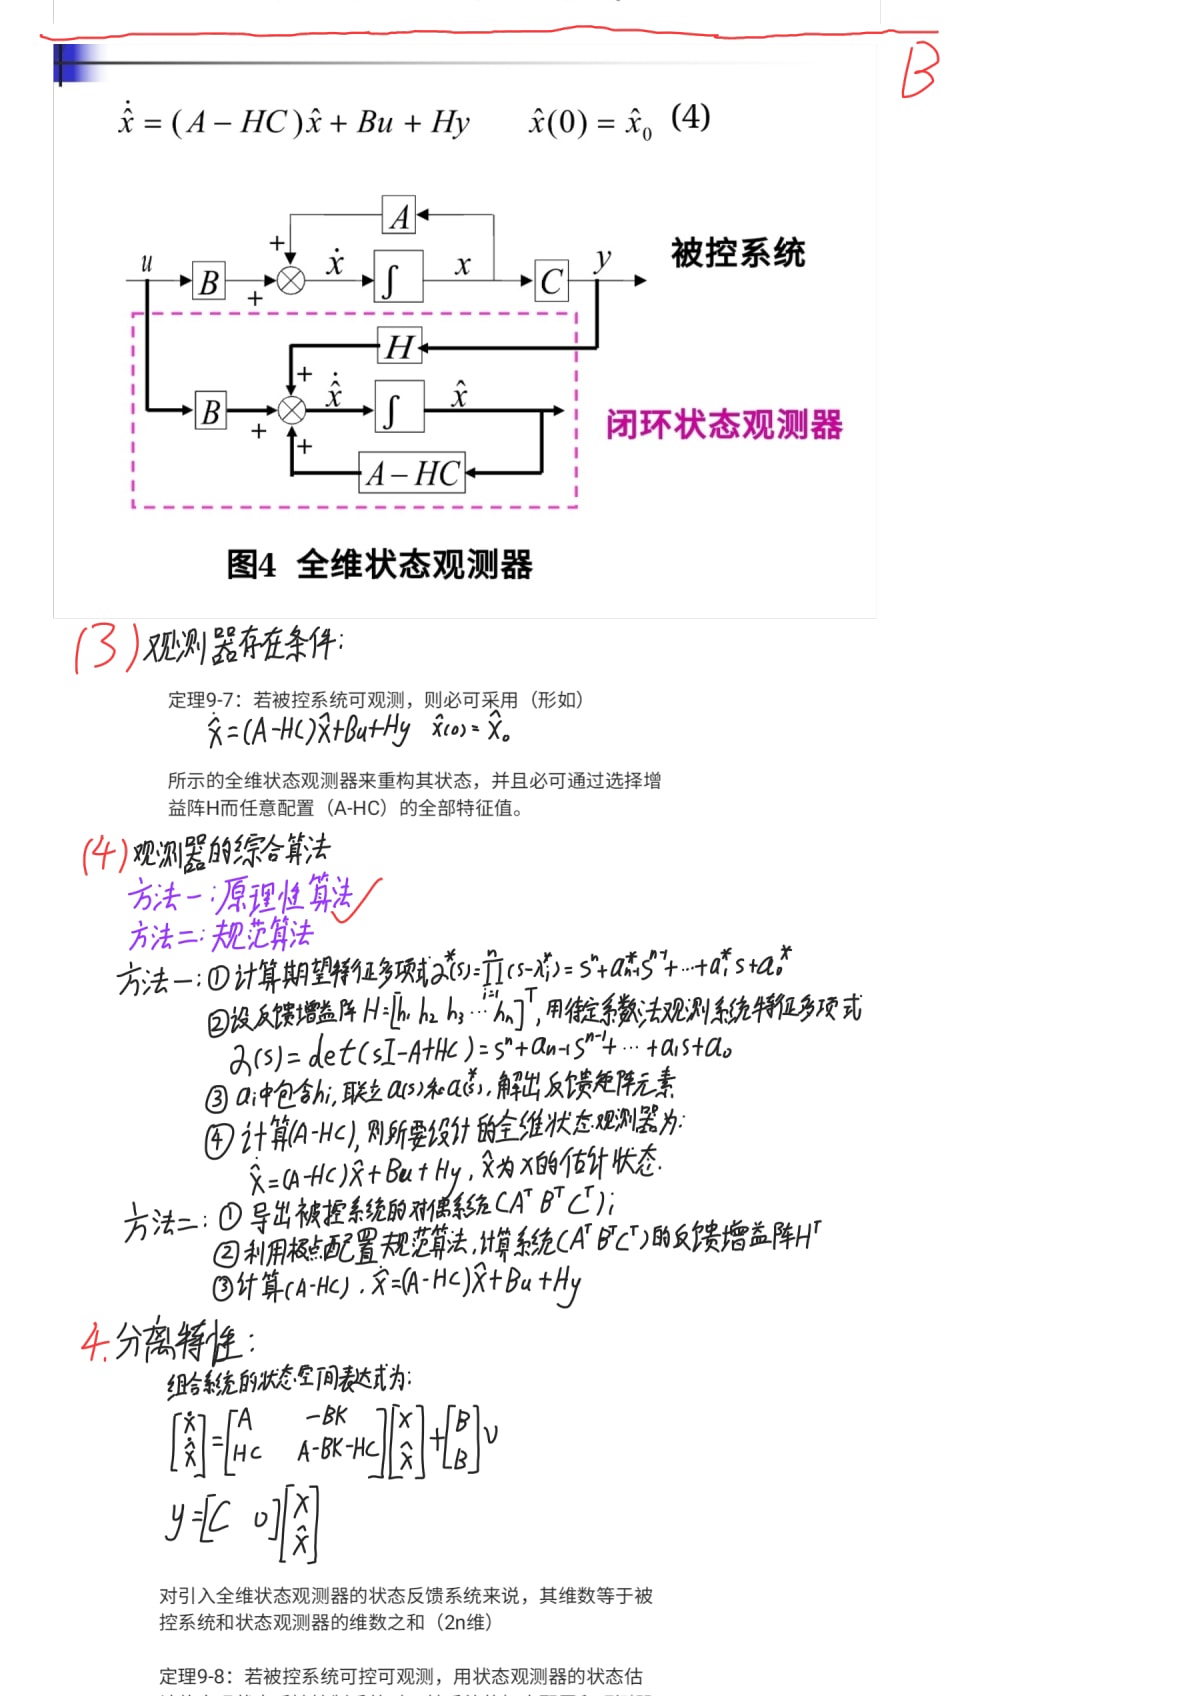 B
ẋ̂ = (A − HC)x̂ + Bu + Hy x̂(0) = x̂₀ (4)
A
+
u B + ẋ ∫ x C y
被控系统
H
+
B + ẋ̂ ∫ x̂
闭环状态观测器
+
A − HC
图4 全维状态观测器
(3)观测器存在条件:
定理9-7：若被控系统可观测，则必可采用（形如）
ẋ̂=(A-HC)x̂+Bu+Hy x̂(0)=x̂₀
所示的全维状态观测器来重构其状态，并且必可通过选择增
益阵H而任意配置（A-HC）的全部特征值。
(4)观测器的综合算法
方法一:原理性算法✓
方法二:规范算法
方法一:①计算期望特征多项式α*(s)=∏ⁿᵢ₌₁(s-λᵢ*)=sⁿ+a*ₙ₋₁sⁿ⁻¹+…+a₁*s+a₀*
②设反馈增益阵H=[h₁ h₂ h₃…hₙ]ᵀ,用待定系数法观测系统特征多项式
α(s)=det(sI-A+HC)=sⁿ+aₙ₋₁sⁿ⁻¹+…+a₁s+a₀
③aᵢ中包含hᵢ,联立a(s)和a*(s),解出反馈矩阵元素
④计算(A-HC),则所要设计的全维状态观测器为:
ẋ̂=(A-HC)x̂+Bu+Hy,x̂为x的估计状态.
方法二:①导出被控系统的对偶系统(Aᵀ Bᵀ Cᵀ);
②利用极点配置规范算法,计算系统(Aᵀ Bᵀ Cᵀ)的反馈增益阵Hᵀ
③计算(A-HC).ẋ̂=(A-HC)x̂+Bu+Hy
4.分离特性:
组合系统的状态空间表达式为:
[ẋ]=[A -BK][x]+[B]v
[ẋ̂] [HC A-BK-HC][x̂] [B]
y=[C 0][x]
[x̂]
对引入全维状态观测器的状态反馈系统来说，其维数等于被
控系统和状态观测器的维数之和（2n维）
定理9-8：若被控系统可控可观测，用状态观测器的状态估